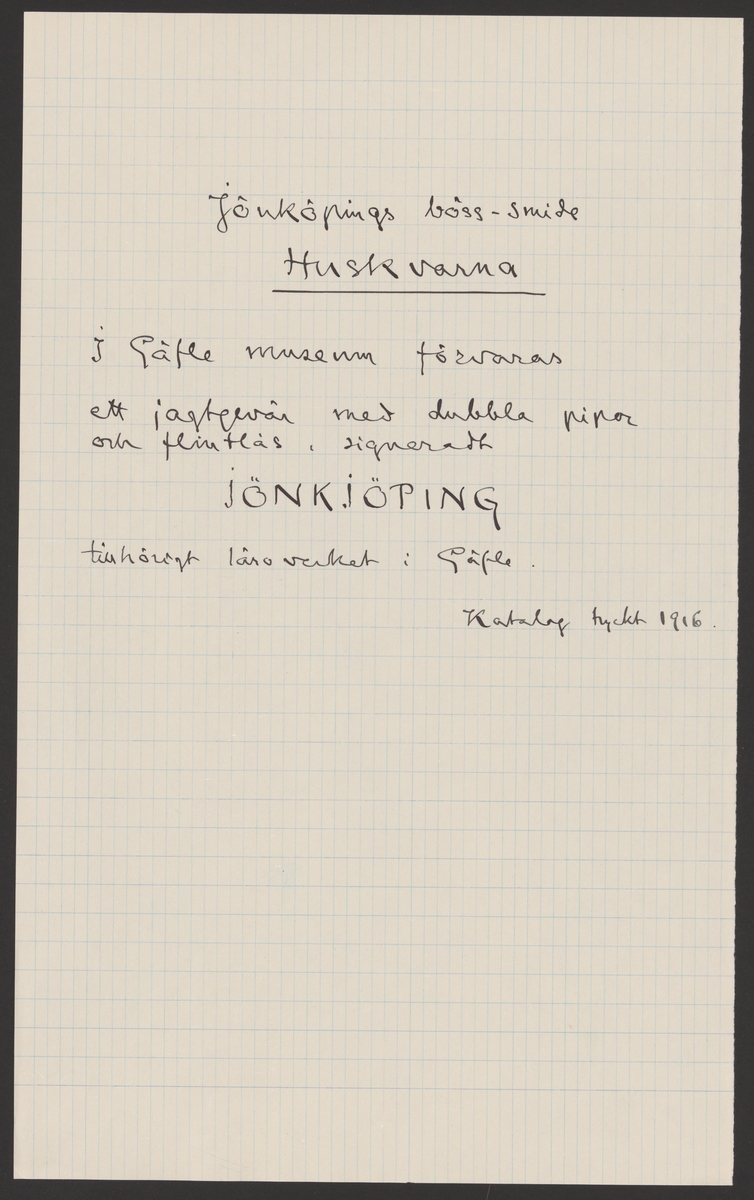 Jönköpings böss-smide
Huskvarna
I Gäfle museum förvaras
ett jagtgevär med dubbla pipor
och flintlås, signeradt
JÖNKJÖPING
tillhörigt läroverket i Gäfle.
Katalog tryckt 1916.